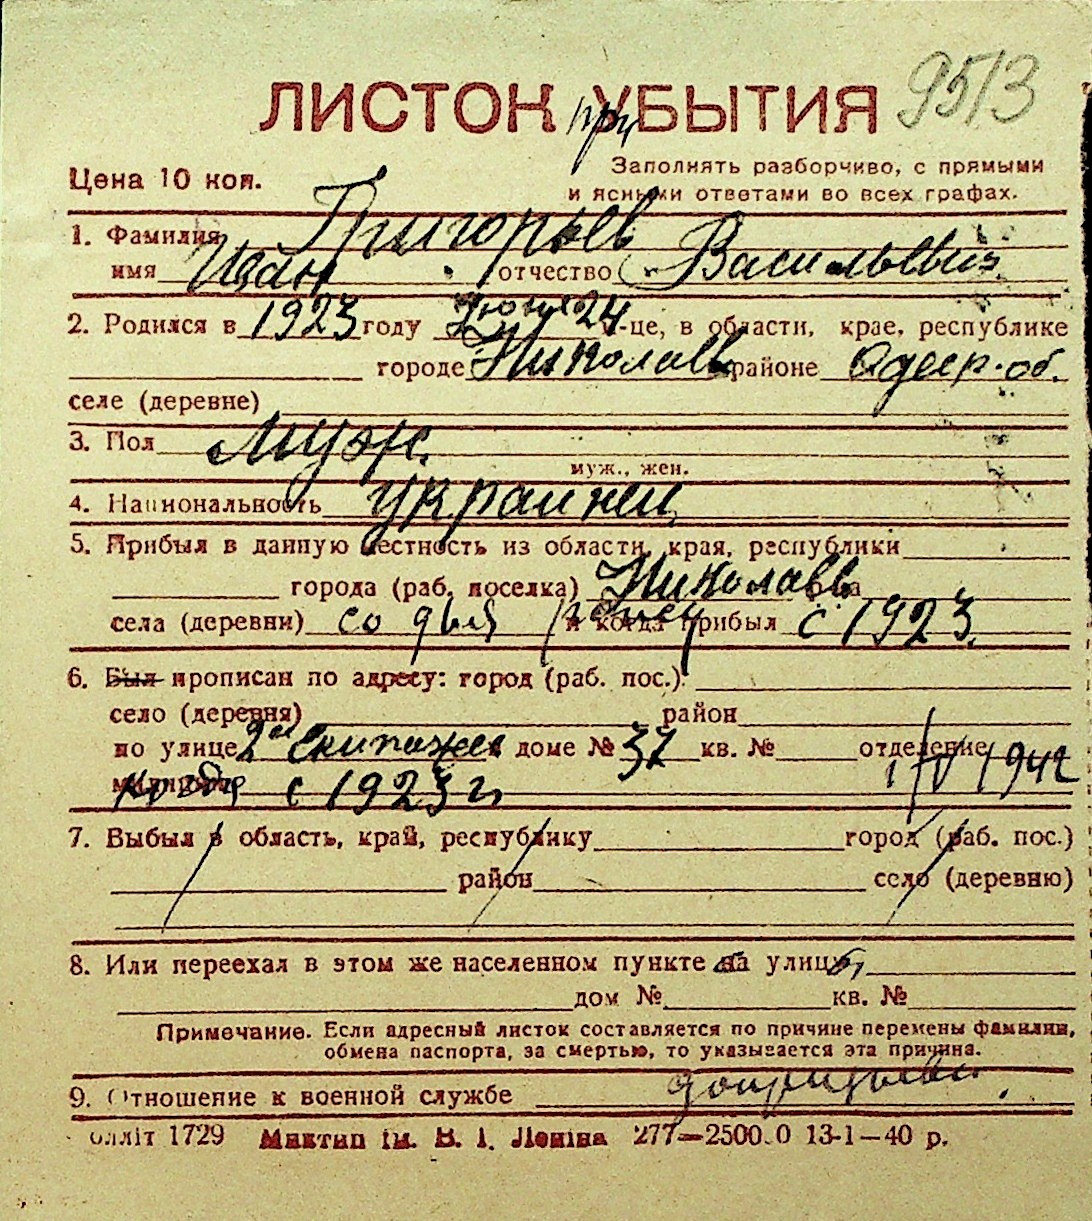 9513
ЛИСТОК при УБЫТИЯ
Цена 10 коп.
Заполнять разборчиво, с прямыми
и ясными ответами во всех графах.
1. Фамилия Григорьев
имя Иван отчество Васильевич
2. Родился в 1923 году Июня 24 м-це, в области, крае, республике
городе Николаев районе Одесс. об.
селе (деревне)
3. Пол Муж.
муж., жен.
4. Национальность украинец
5. Прибыл в данную местность из области, края, республики
города (раб. поселка) Николаев р-на
села (деревни) со дня рожден и когда прибыл с 1923
6. Был прописан по адресу: город (раб. пос.)
село (деревня) район
по улице 2ая Экипажес доме № 37 кв. № отделение
милиции с 1923 г. 1/IV 1942
7. Выбыл в область, край, республику город (раб. пос.)
район село (деревню)
8. Или переехал в этом же населенном пункте на улицу
дом № кв. №
Примечание. Если адресный листок составляется по причине перемены фамилии,
обмена паспорта, за смертью, то указывается эта причина.
9. Отношение к военной службе
блліт 1729 Миктип ім. В. І. Леніна 277—2500.0 13-1—40 р.